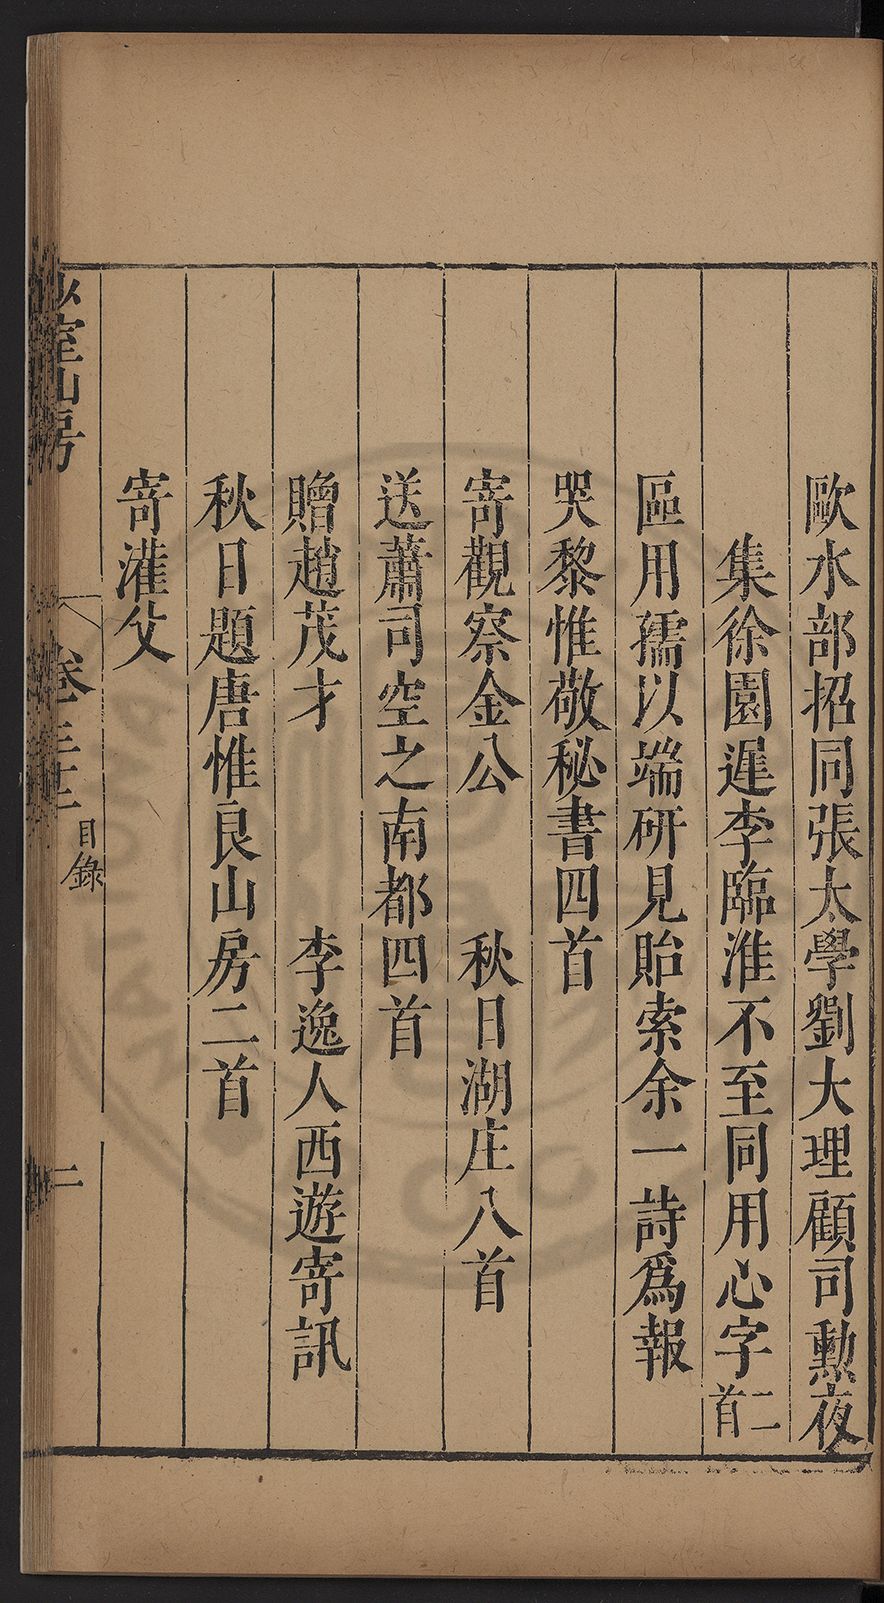 歐水部招同張太學劉大理顧司勲夜
集徐園遲李臨淮不至同用心字二首
區用孺以端研見貽索余一詩爲報
哭黎惟敬秘書四首
寄觀察金公　秋日湖庄八首
送蕭司空之南都四首
贈趙茂才　李逸人西遊寄訊
秋日題唐惟良山房二首
寄灌父
少室山房
目錄
二